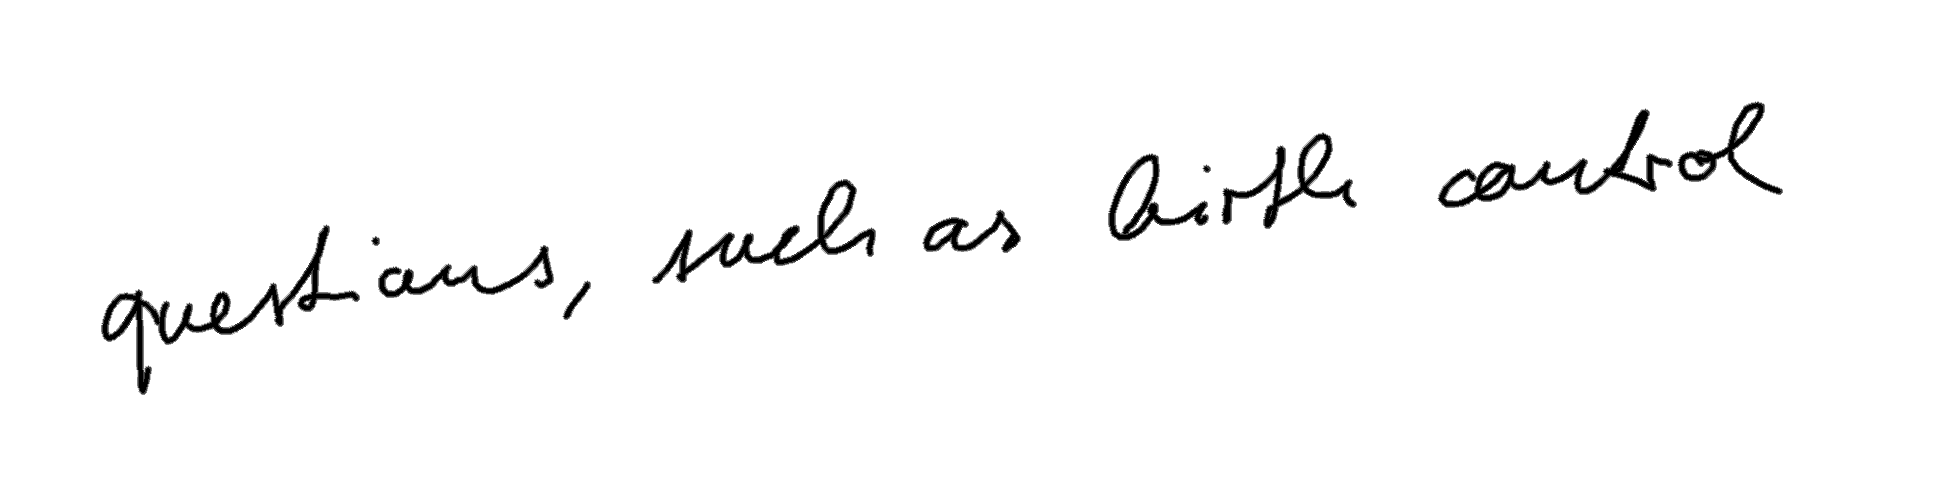 questions, such as birth control